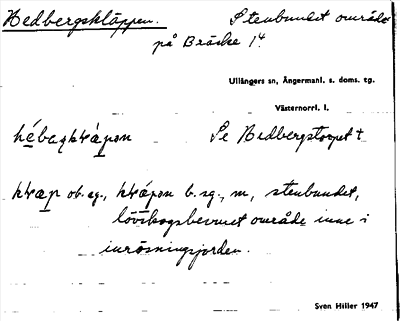 Hedbergskläppen. Stenbundet område
på Bräcke 1⁴.
Ullångers sn, Ångermanl. s. doms. tg.
Västernorrl. l.
Se Hedbergstorpet +
ob. sg., b. sg., m., stenbundet,
lövskogsbevuxet område inne i
inrösningsjorden.
Sven Hiller 1947